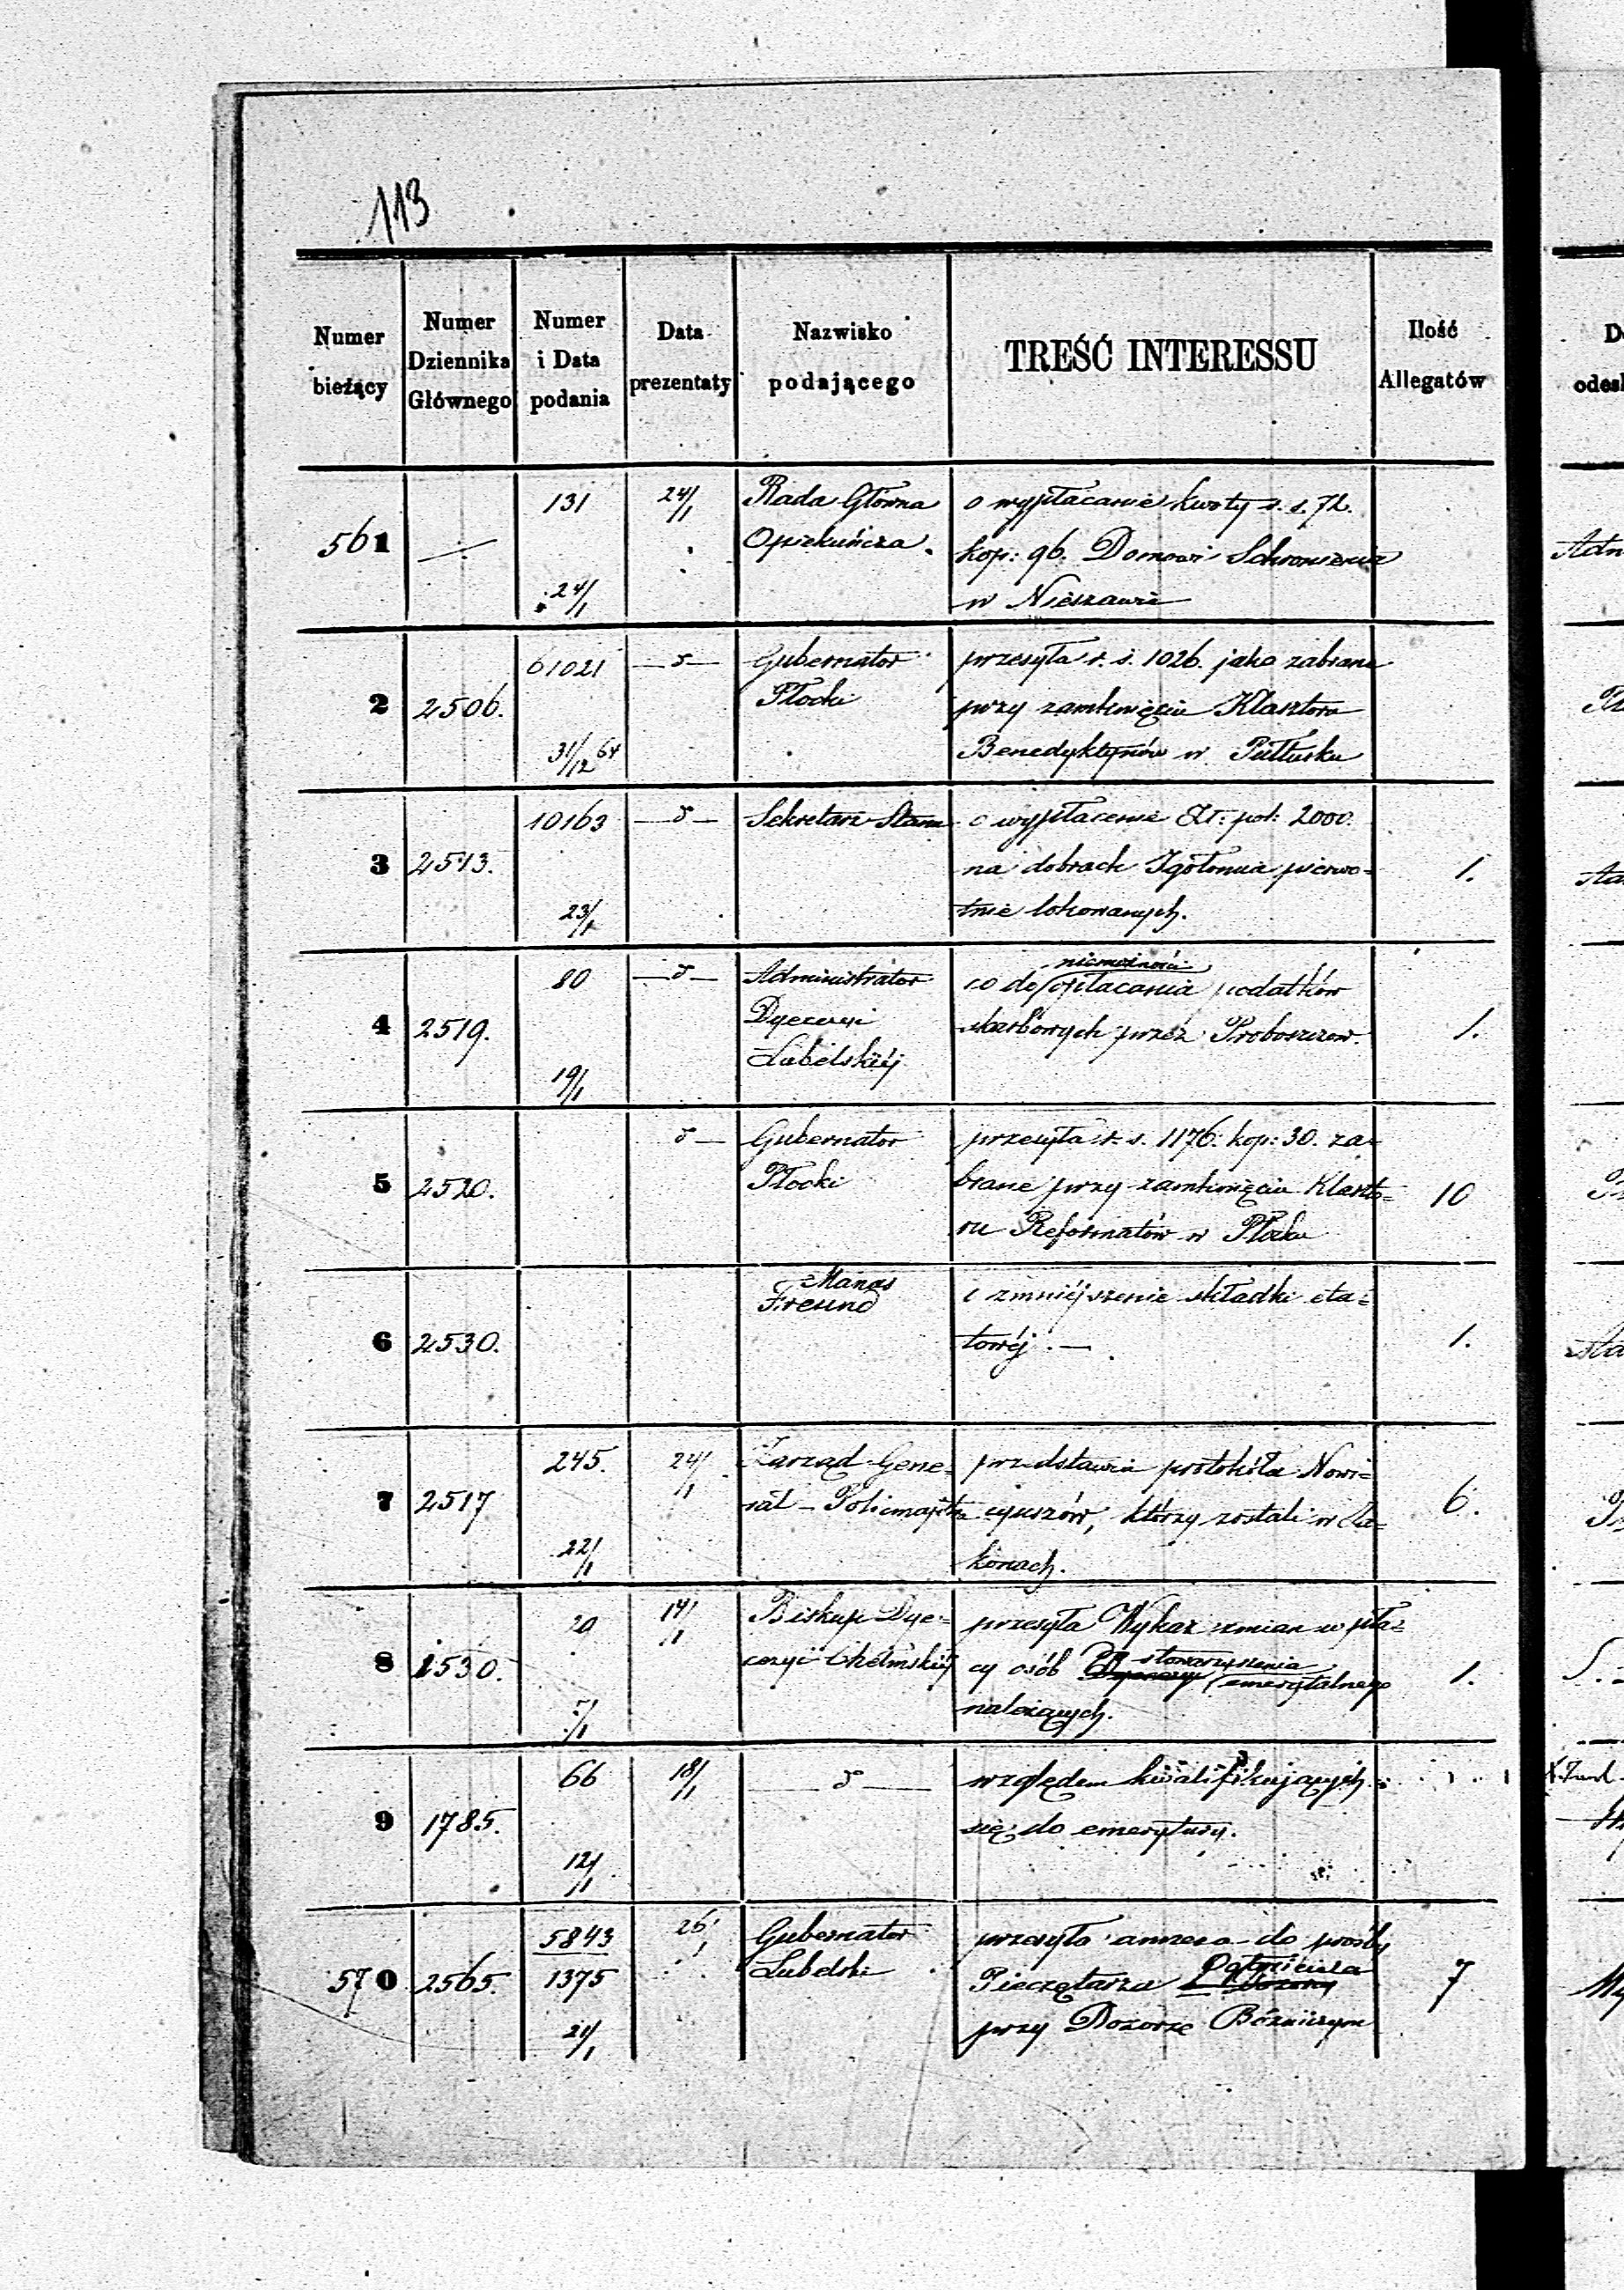 113
Numer bieżący
Numer Dziennika Głównego
Numer i Data podania
Data prezentaty
Nazwisko podającego
TREŚĆ INTERESSU
Ilość Allegatów
561
131
24/1
24/1
Rada Główna
Opiekuńcza.
o wypłacanie kwoty r. s. 72.
kop: 96. Domowi Schronienia
w Nieszawie
2
2506.
61021
31/12 64
Gubernator
Płocki
przesyła r. s. 1026. jako zabrane
przy zamknięciu Klasztoru
Benedyktynów w Pułtusku
3
2513.
10163
23/1
Sekretarz Stanu
o wypłacenie Zł: pol: 2000.
na dobrach Igołomia pierwo=
tnie lokowanych.
1.
4
2519.
80
19/1
Administrator
Dyecezyi
Lubelskiéj
niemożności
co do opłacania podatków
skarbowych przez Proboszczow.
1.
5
2520.
Gubernator
Płocki
przesyła r. s. 1176. kop: 30. za=
brane przy zamknięciu Klaszto=
ru Reformatów w Płocku
10
6
2530.
Manas
Freund
o zmniéjszenie składki eta=
towéj. —
1.
7
2517
245.
22/1
24/1
Zarząd Gene=
rał-Policmajstra
przedstawia protokóła Nowi=
cyuszów, którzy zostali w Za=
konach.
6.
8
1530.
20
5/1
14/1
Biskup Dye=
cezyi Chełmskiéj
przesyła Wykaz zmian w pła=
stowarzyszenia
cy osób emerytalnego
należących.
1.
9
1785.
66
12/1
18/1
względem kwalifikujących
się do emerytury.
570
2565.
5843
1375
21/1
26/1
Gubernator
Lubelski
przesyła annexa do prośby
Pieczętarza
przy Dozorze Bóżniczym
7